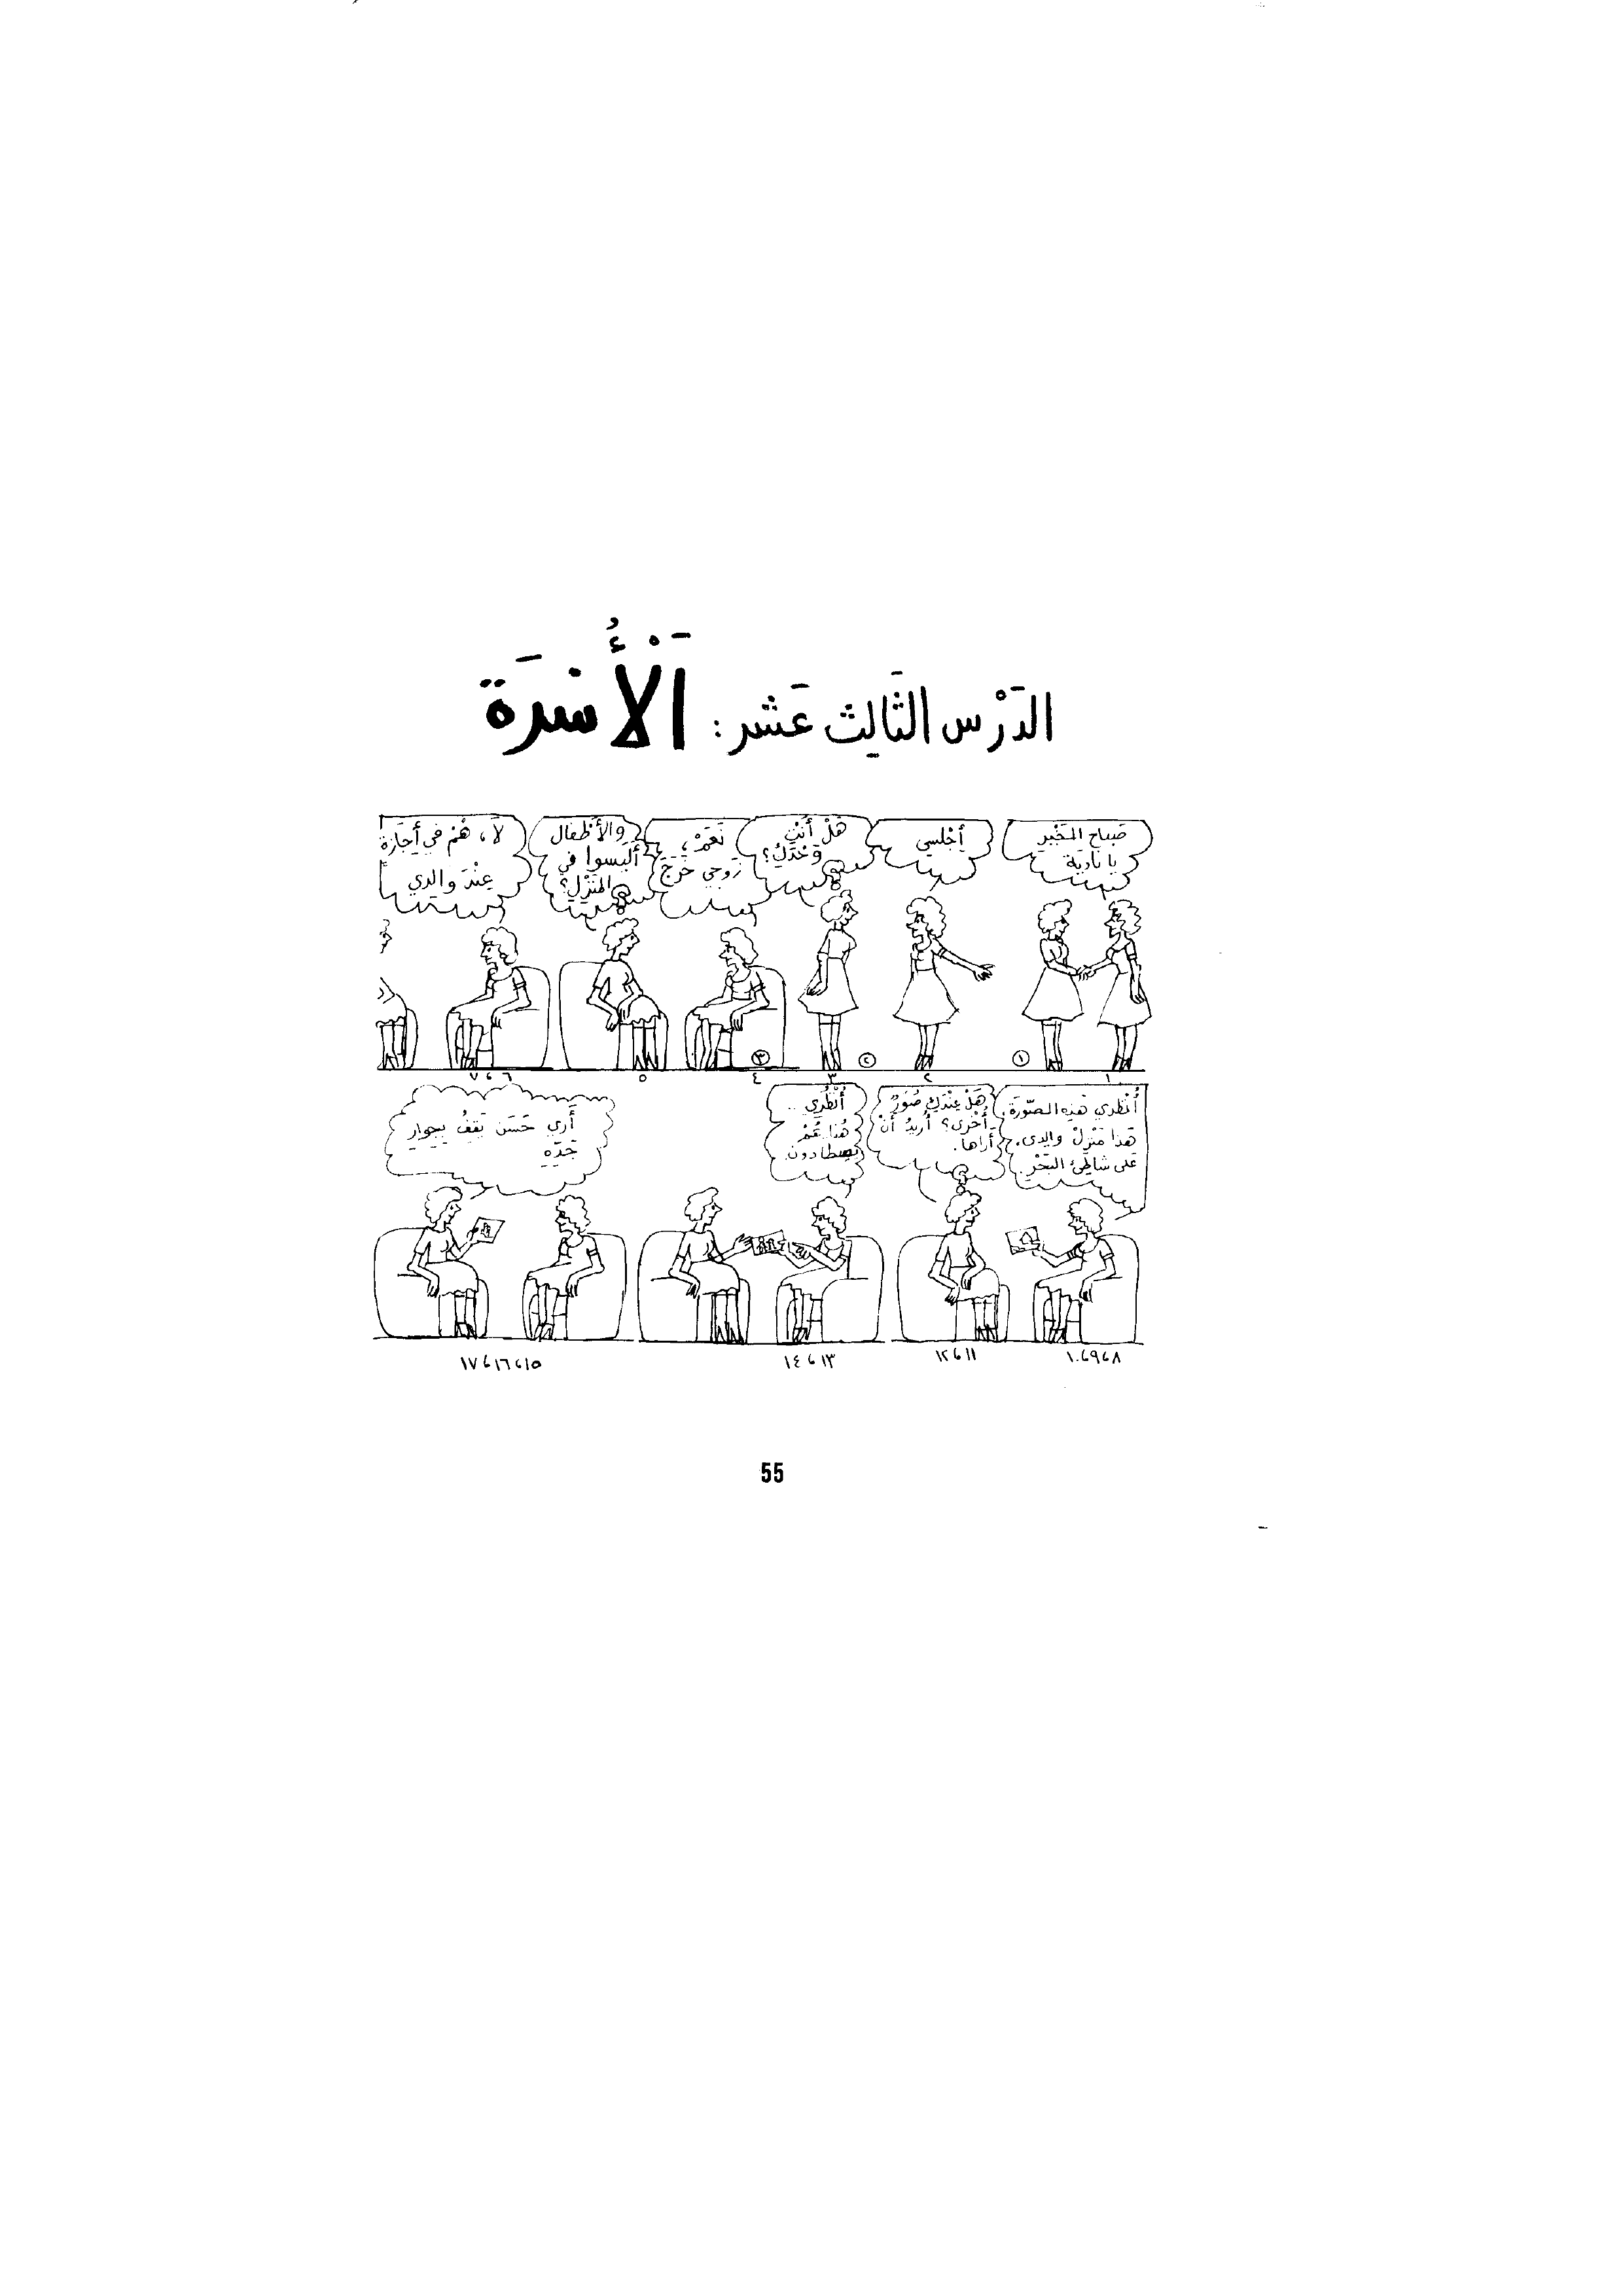 الدَرْس الثَالِث عَشَر: اَلْأُسْرَة
صَباح الخَيْر
يا نادِيَة
أجْلسي
هَلْ أنْتِ
وَحْدَكِ؟
نَعَمْ،
زَوجي خَرَجَ
والأطْفال
ألَيْسوا في
المَنْزِل؟
لا، هُمْ في أجَازة
عِنْدَ والدي
١
٢
٣
١
٢
٣
٤
٥
٦ ، ٧
أُنْظري هَذِهِ الصّورَة.
هَذا مَنْزِلْ والِدى،
عَلى شاطِئ البَحْر.
هَلْ عِنْدَكِ صُوَرٌ
أُخْرى؟ أُريدُ أنْ
أراها.
أُنْظُري ..
هُنا هُمْ
يصطادون.
أَرى حَسَن يَقِفُ بِجِوارِ
جَدّه
٨ ، ٩ ، ١٠
١١ ، ١٢
١٣ ، ١٤
١٥ ، ١٦ ، ١٧
55